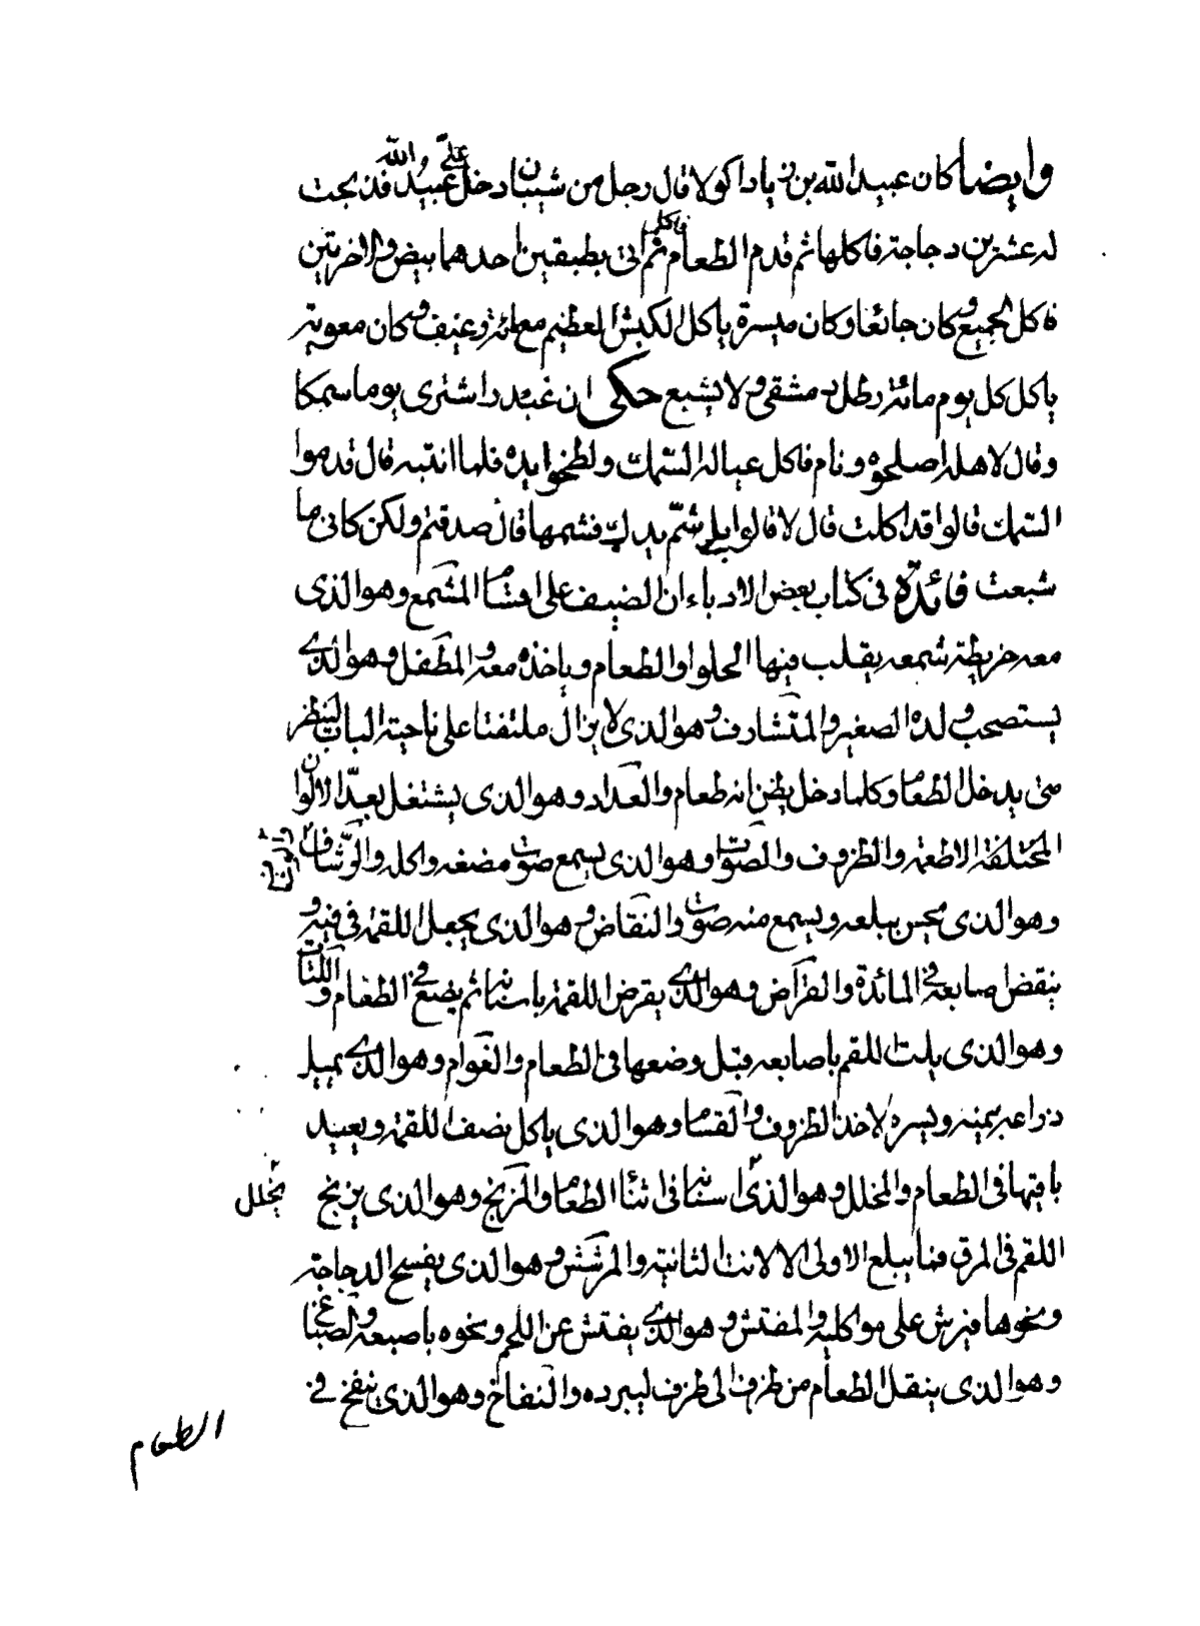 وايضا كان عبيد الله بن زياد اكولا قال رجل من شيبان دخل على عبيد الله فذبحت
له عشرين دجاجة فاكلها ثم قدم الطعام فاكل ثم اتى بطبقين احدهما بيض والاخر تين
فاكل الجميع وكان جائعا وكان ميسرة ياكل الكبش العظيم مع مائة رغيف وكان معوية
ياكل كل يوم مائة رطل دمشقى ولا يشبع حكى ان اشترى يوما سمكا
وقال لاهله اصلحوه ونام فاكل عياله السمك ولطخوا يده فلما انتبه قال قدموا
السمك قالوا قد اكلت قال لا قالوا بلى شمّ يدك فشمها قال صدقتم ولكن كانى ما
شبعت فائدة فى كتاب بعض الادباء ان الضيف على اقسام المشمع وهو الذى
معه خريطة شمعه يقلب فيها الحلوا والطعام وياخذه معه والمطفل وهو الذى
يستصحب ولده الصغير والمتشارف وهو الذى لا يزال ملتفتا على ناحية الباب لينظر
متى يدخل الطعام وكلما دخل يظن انه طعام والعداد وهو الذى يشتغل بعدّ الالوان
المختلفة الاطعمة والظروف والصوات وهو الذى يسمع صوت مضغه واكله والوشاف
وهو الذى يحس ببلعه ويسمع منه صوت والنقاض وهو الذى يجعل اللقمة فى فيه و
ينقض اصابعه فى المائدة والقراض وهو الذى يقرض اللقمة باسنانه ثم يضع فى الطعام واللتات
وهو الذى يلت اللقم باصابعه قبل وضعها فى الطعام والعوام وهو الذى يميل
ذراعه يمينه ويسره لاخذ الظروف والقسام وهو الذى ياكل نصف اللقمة ويعيد
باقيها فى الطعام والمخلل وهو الذى اسنانه فى اثناء الطعام والمزبج وهو الذى يزبج
يخلل
اللقم فى المرق فما يبلع الاولى الا لانت الثانية والمرشش وهو الذى يفسخ الدجاجة
ونحوها فيرش على مواكليه والمفتش وهو الذى يفتش عن اللحم ونحوه باصبعه والصباغ
وهو الذى ينقل الطعام من ظرف الى ظرف ليبرده والنفاخ وهو الذى ينفخ فى
الطعام